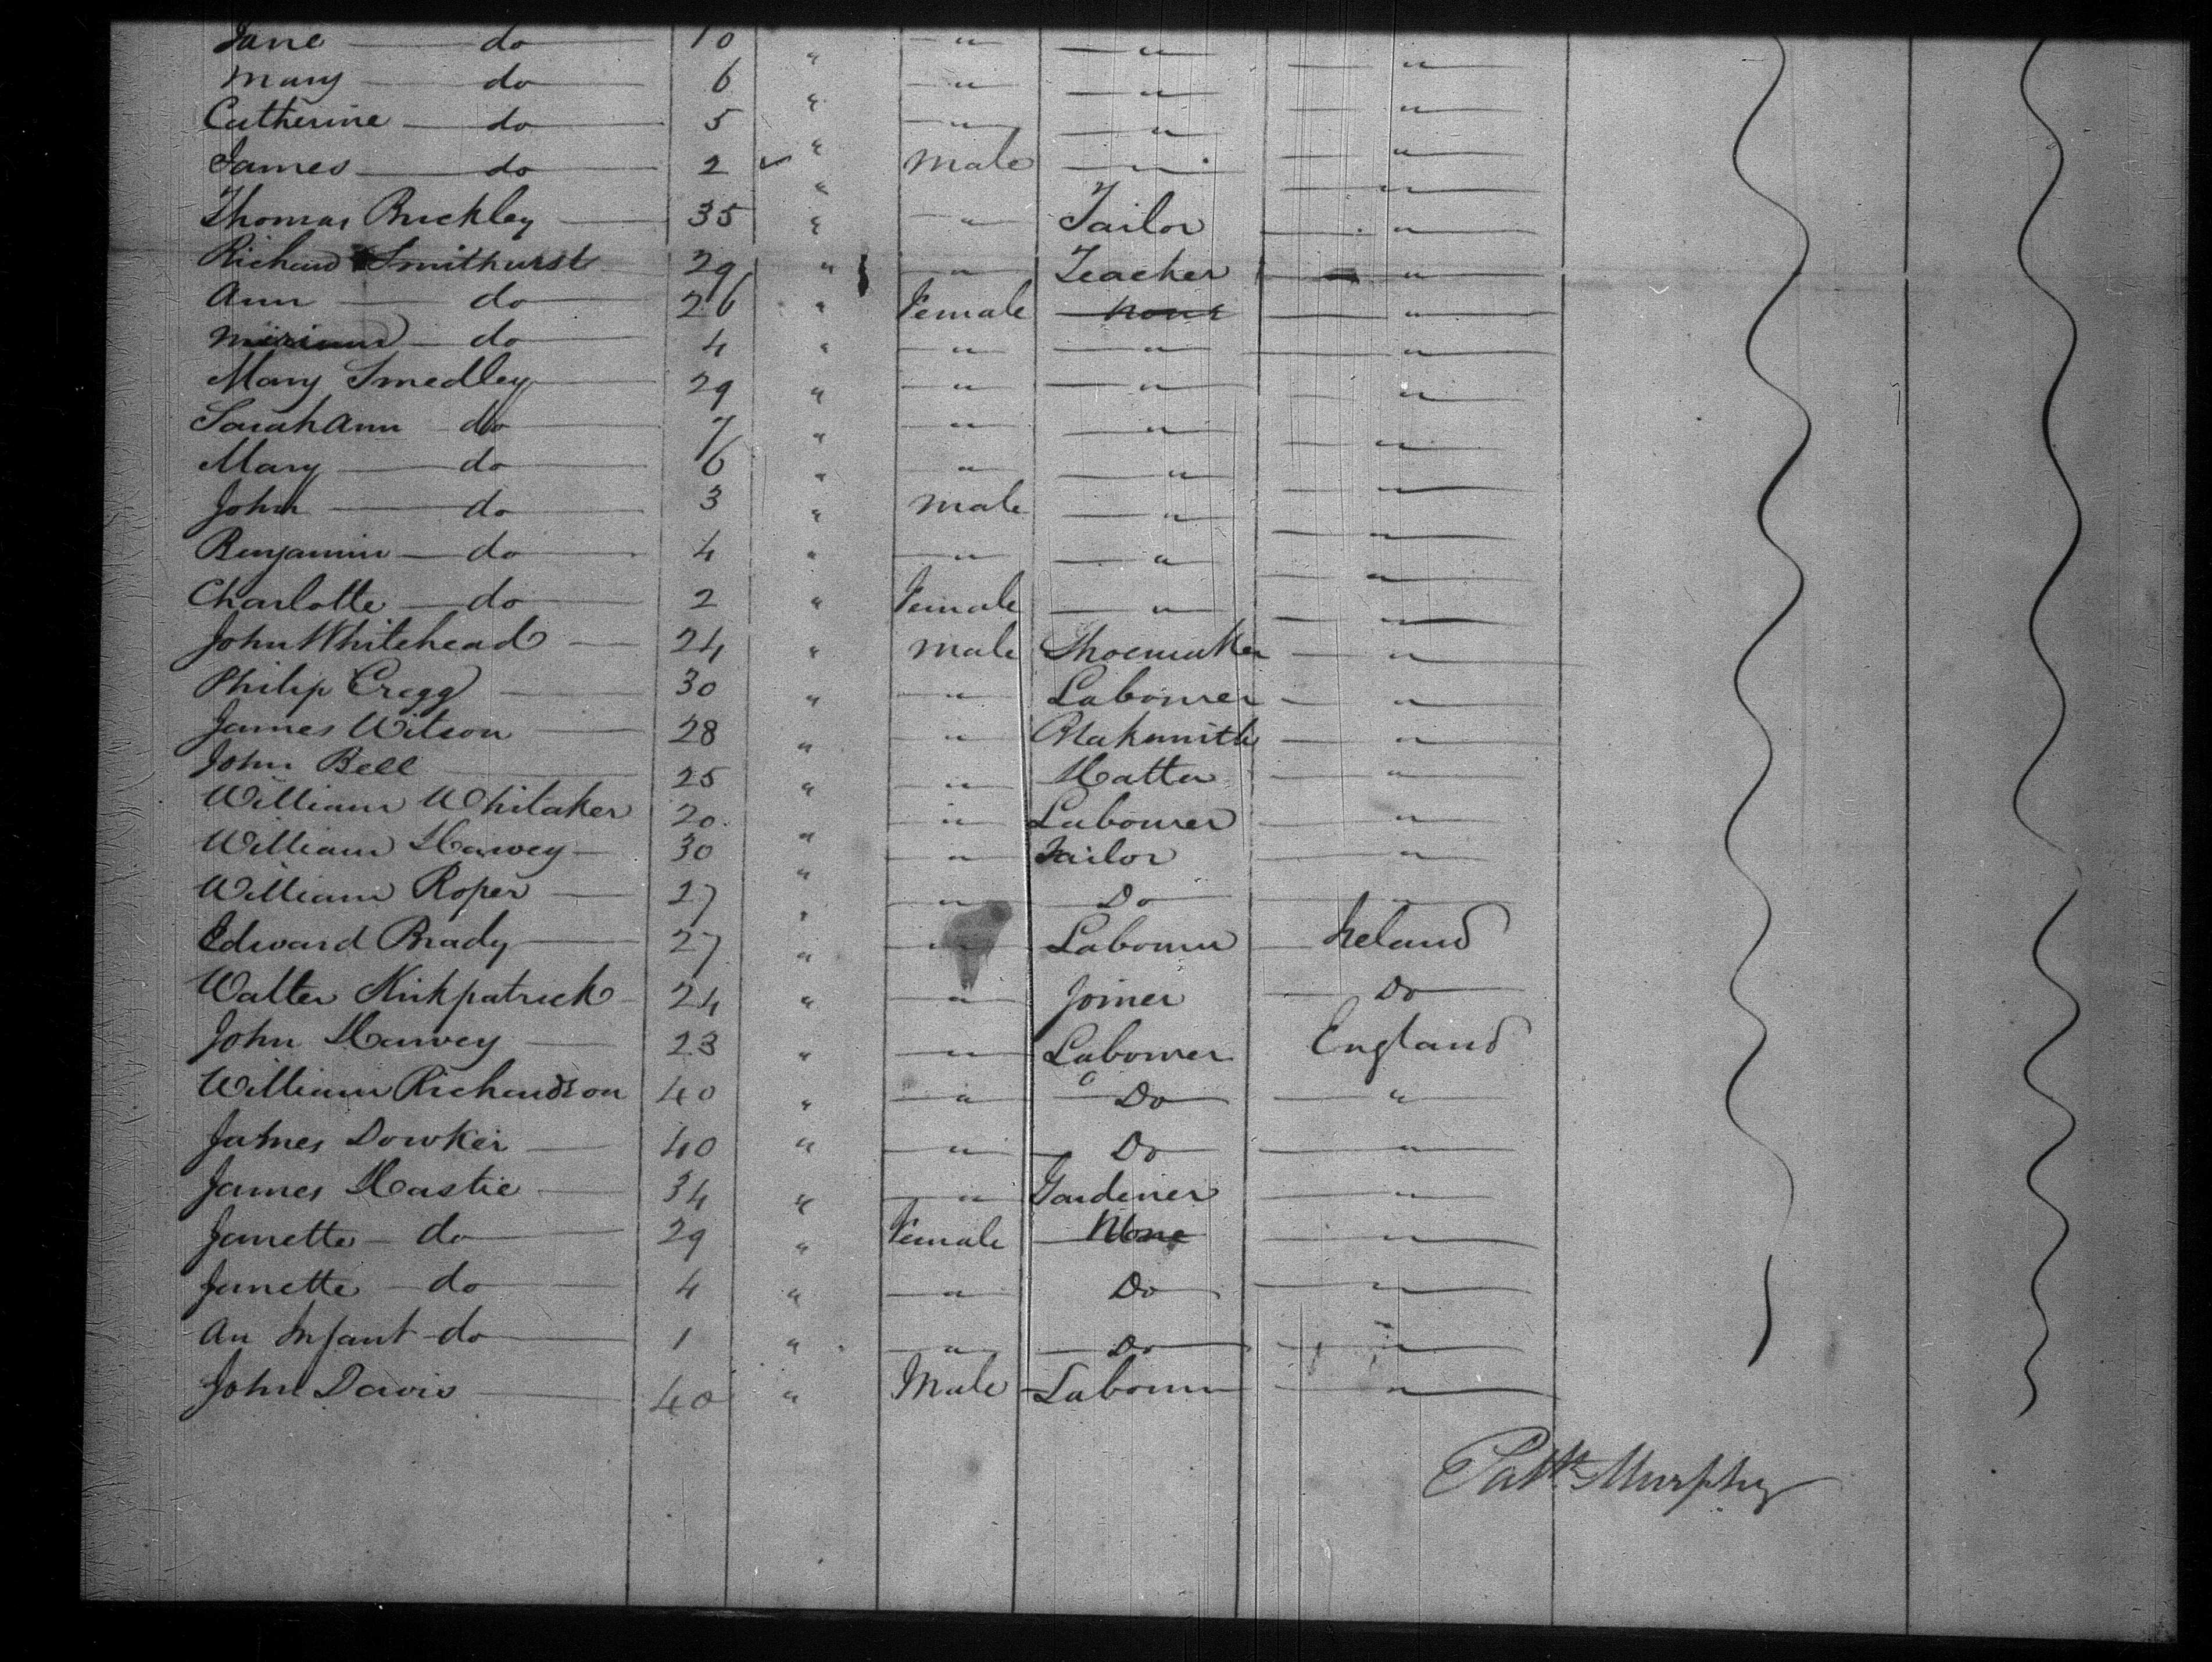 Jane do 10 " " " "
Mary do 6 " " " "
Catherine do 5 " " " "
James do 2 " Male " "
Thomas Buckley 35 " " Tailor "
Richard Smithurst 29 " " Teacher "
Ann do 26 " Female None "
Miriam do 4 " " " "
Mary Smedley 29 " " " "
Sarah Ann do 7 " " " "
Mary do 6 " " " "
John do 3 " Male " "
Benjamin do 4 " " " "
Charlotte do 2 " Female " "
John Whitehead 24 " Male Shoemaker "
Philip Cregg 30 " " Labourer "
James Wilson 28 " " Blaksmith "
John Bell 25 " " Hatter "
William Whitaker 20 " " Labourer "
William Harvey 30 " " Tailor "
William Roper 27 " " Do
Edward Brady 27 " " Labourer Ireland
Walter Kirkpatrick 24 " " Joiner Do
John Harvey 23 " " Labourer England
William Richardson 40 " " Do "
James Dowker 40 " " Do "
James Hastie 34 " " Gardener "
Janette do 29 " Female None "
Janette do 4 " " Do "
An Infant do 1 " " Do "
John Davis 40 " Male Labourer "
Patk Murphy